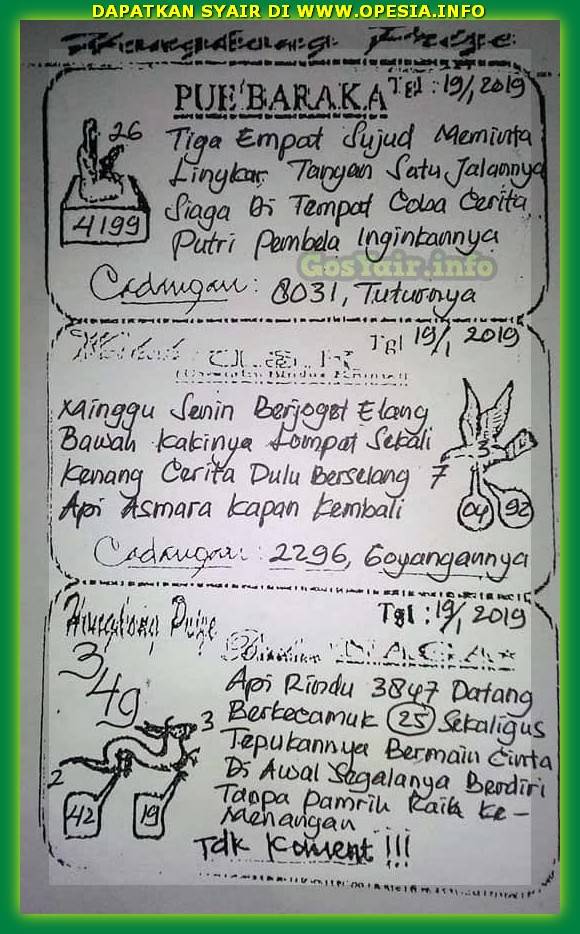 DAPATKAN SYAIR DI WWW.OPESIA.INFO
PUE'BARAKA
Tgl : 19/1, 2019
26
4199
Tiga Empat Sujud Meminta
Lingkar Tangan Satu Jalannya
Siaga Di Tempat Coba Cerita
Putri Pembela Inginkannya
GosYair.info
Cadangan : 8031, Tuturnya
Tgl 19/1 2019
Xainggu Senin Berjoget Elang
Bawah Kakinya Lompat Sekali
Kenang Cerita Dulu Berselang 7
Api Asmara Kapan Kembali
3
04 92
Cadangan : 2296, Goyangannya
Hongkong Prize
Tgl : 19/1, 2019
3
49
3
2
42 19
Api Rindu 3847 Datang
Berkecamuk 25 Sekaligus
Tepukannya Bermain Cinta
Di Awal Segalanya Berdiri
Tanpa Pamrih Raih Ke-
Menangan
Tdk Koment !!!